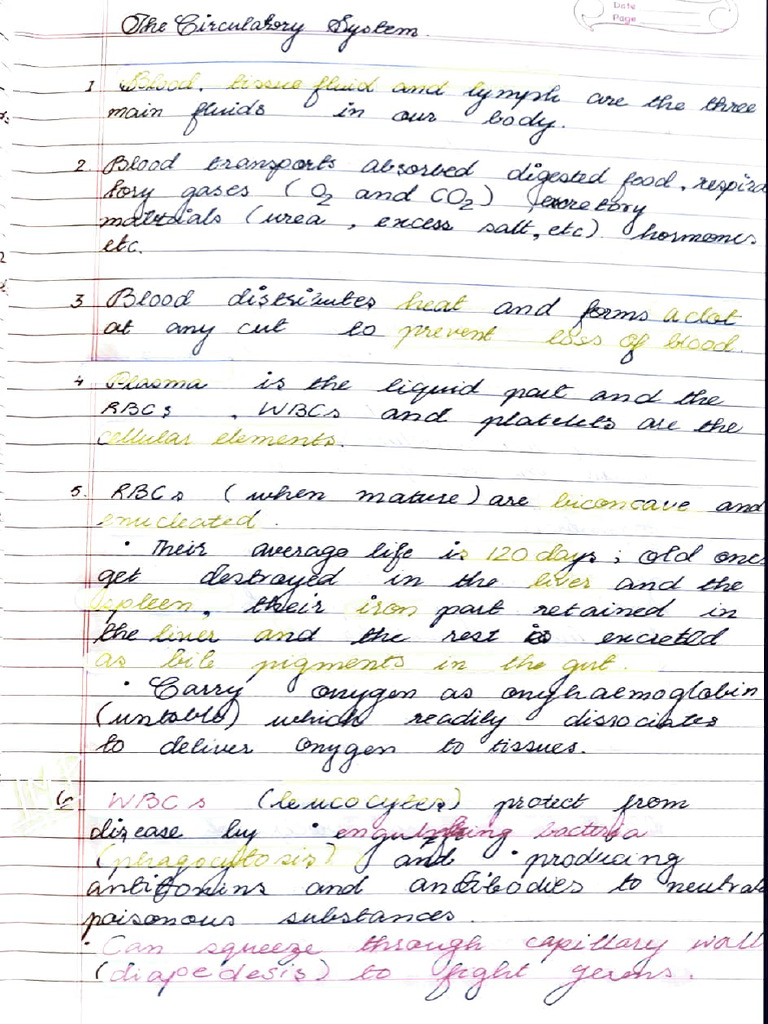 Date
Page
The Circulatory System.
1 Blood, tissue fluid and lymph are the three
main fluids in our body.
2. Blood transports absorbed digested food, respira
tory gases (O2 and CO2) excretory
materials (urea, excess salt, etc) hormones
etc.
3 Blood distributes heat and forms a clot
at any cut to prevent loss of blood.
4 Plasma is the liquid part and the
RBCs, WBCs and platelets are the
cellular elements.
5. RBCs (when mature) are biconcave and
enucleated.
• Their average life is 120 days; old ones
get destroyed in the liver and the
spleen, their iron part retained in
the liver and the rest is excreted
as bile pigments in the gut.
• Carry oxygen as oxyhaemoglobin
(unstable) which readily dissociates
to deliver oxygen to tissues.
6. WBCs (leucocytes) protect from
disease by • engulfing bacteria
(phagocytosis) and • producing
antitoxins and antibodies to neutral
poisonous substances.
• Can squeeze through capillary wall
(diapedesis) to fight germs.